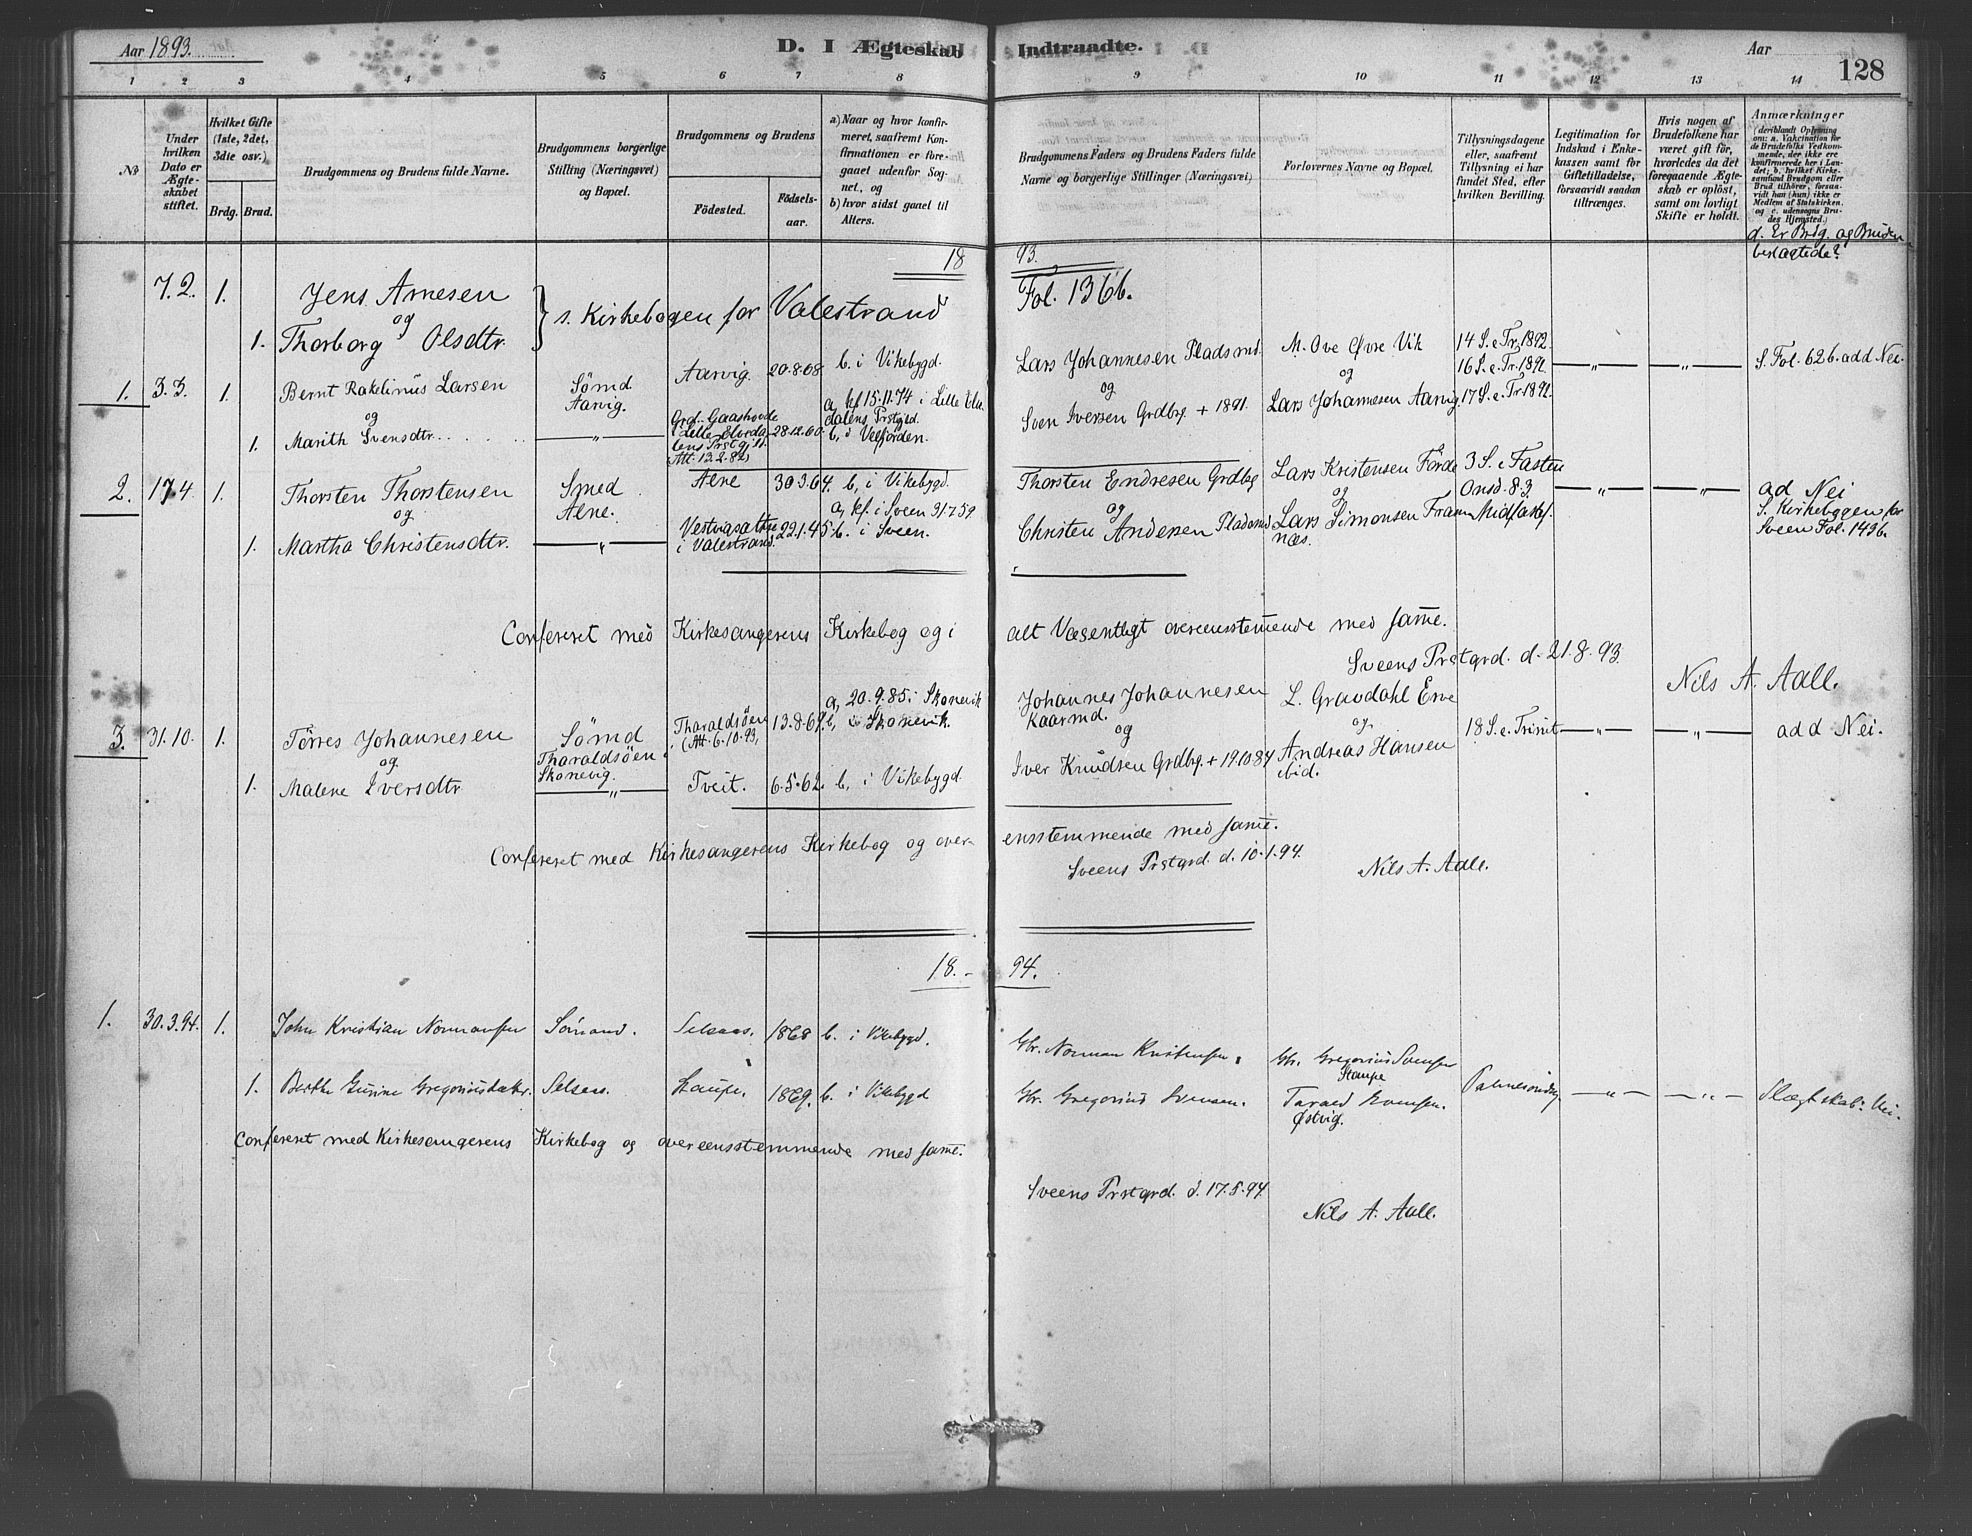 Aar 1893.
D. I Ægteskab Indtraadte.
Aar
128
1 2 3 4 5 6 7 8 9 10 11 12 13 14
No
Under hvilken Dato er Ægteskabet stiftet.
Hvilket Gifte (1ste, 2det, 3die osv.)
Brdg. Brud.
Brudgommens og Brudens fulde Navne.
Brudgommens borgerlige Stilling (Næringsvei) og Bopæl.
Brudgommens og Brudens
Födested.
Födselsaar.
a) Naar og hvor konfirmeret, saafremt Konfirmationen er foregaaet udenfor Sognet, og
b) hvor sidst gaaet til Alters.
Brudgommens Faders og Brudens Faders fulde Navne og borgerlige Stillinger (Næringsvei)
Forlovernes Navne og Bopæl.
Tillysningsdagene eller, saafremt Tillysning ei har fundet Sted, efter hvilken Bevilling.
Legitimation for Indskud i Enkekassen samt for Giftetilladelse, forsaavidt saadan tiltrænges.
Hvis nogen af Brudefolkene har været gift för, hvorledes da det foregaaende Ægteskab er oplöst, samt om lovligt Skifte er holdt.
Anmærkninger
(deriblandt Oplysning om: a. Vakcination for de Brudefolks Vedkommende, der ikke ere konfirmerede her i Landet; b. hvilket Kirkesamfund Brudgom eller Brud tilhörer, forsaavidt han (hun) ikke er Medlem af Statskirken, og c. udensogns Brudes Hjemsted.)
d. Er Brdg. og Bruden beslægtede?
18 93.
7.2. 1. Jens Arnesen
og } s. Kirkebogen for Valestrand Fol. 136b.
1. Thorborg Olsdtr.
1. 3.3. 1. Bernt Rakelinus Larsen Sømd Aarvig. Aarvig. 20.8.68 b. i Vikebygd. Lars Johannesen Pladsmd. M. Ove Øvre Vik 14 S. e Tr. 1892. 16 S. e Tr. 1892 —„— —„— S. Fol. 62b. add Nei.
og
1. Marith Svensdtr. —„— Grd. Gaashovde i Lille Elvedalens Prstgj. (Att. 13.2.82) 28.12.60. a, kf. 15.11.74 i Lille Elvdalens Prstgjd. b, i Velfjorden. Sven Iversen Grdbrg. + 1891. Lars Johannesen Aarvig. 17 S. e Tr. 1892.
2. 17.4 1. Thorsten Thorstensen Smed Alne. Alne 30.3.64. b, i Vikebygd. Thorsten Endresen Grdbg Lars Kristensen Förde 3 S. i Fasten Onsd. 8.3. —„— —„— add Nei
og
1. Martha Christensdtr. —„— i Valestrand. 22.1.45 a, kf. i Sveen 31.7.59 b. i Sveen. Christen Andersen Pladsmd Lars Simonsen Framnæs. Midfaste. S. Kirkebogen for Sveen Fol. 143b.
Confereret med Kirkesangerens Kirkebog og i alt Væsentligt overeensstemende med same.
Sveens Prstgrd. d. 21.8.93.
Nils A. Aall.
3. 31.10. 1. Törres Johannesen Sømd Tharaldsöen i Skonevig. Tharaldsöen (Att. 6.10.93) 13.8.69. a, 20.9.85 i Skonevik b, i Skonevik. Johannes Johannesen Kaarmd. L. Gravdahl Erve 18 S. e Trinit —„— —„— add Nei.
og
1. Malene Iversdtr —„— Tveit. 6.5.62. b, i Vikebygd. Iver Knudsen Grdbg. + 19.10.84 Andreas Hansen ibid.
Confereret med Kirkesangerens Kirkebog og overensstemmende med same.
Sveens Prstgrd. d. 10.1.94.
Nils A. Aall.
18.- 94.
1. 30.3.94. 1. John Kristian Normansen Sømand. Selsaas. 1868 b. i Vikebygd. Gbr. Norman Kristensen. Gbr. Gregorius Svensen Staupe
1. Berthe Gurine Gregoriusdatter. Selsaas. Staupe. 1869. b. i Vikebygd Gbr. Gregorius Svensen. Tarald Svensen. Østvig. Palmesøndag —„— —„— Slægtskab: Nei.
Confereret med Kirkesangerens Kirkebog og overeensstemmende med same.
Sveens Prstgrd. d. 17.5.94.
Nils A. Aall.